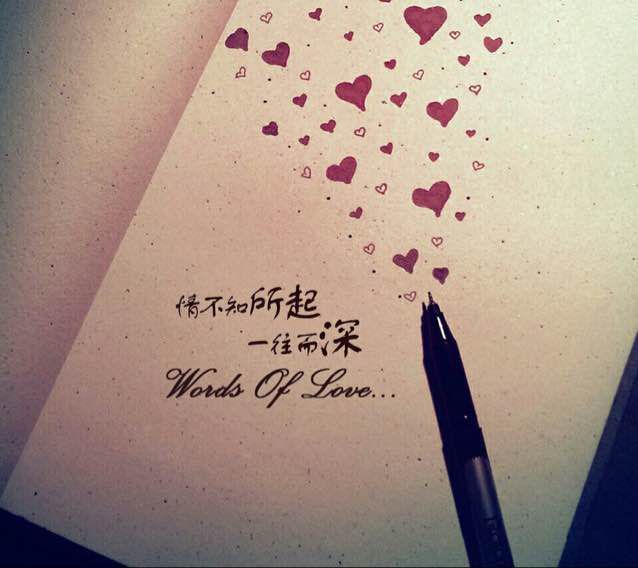 情不知所起
一往而深
Words Of Love...